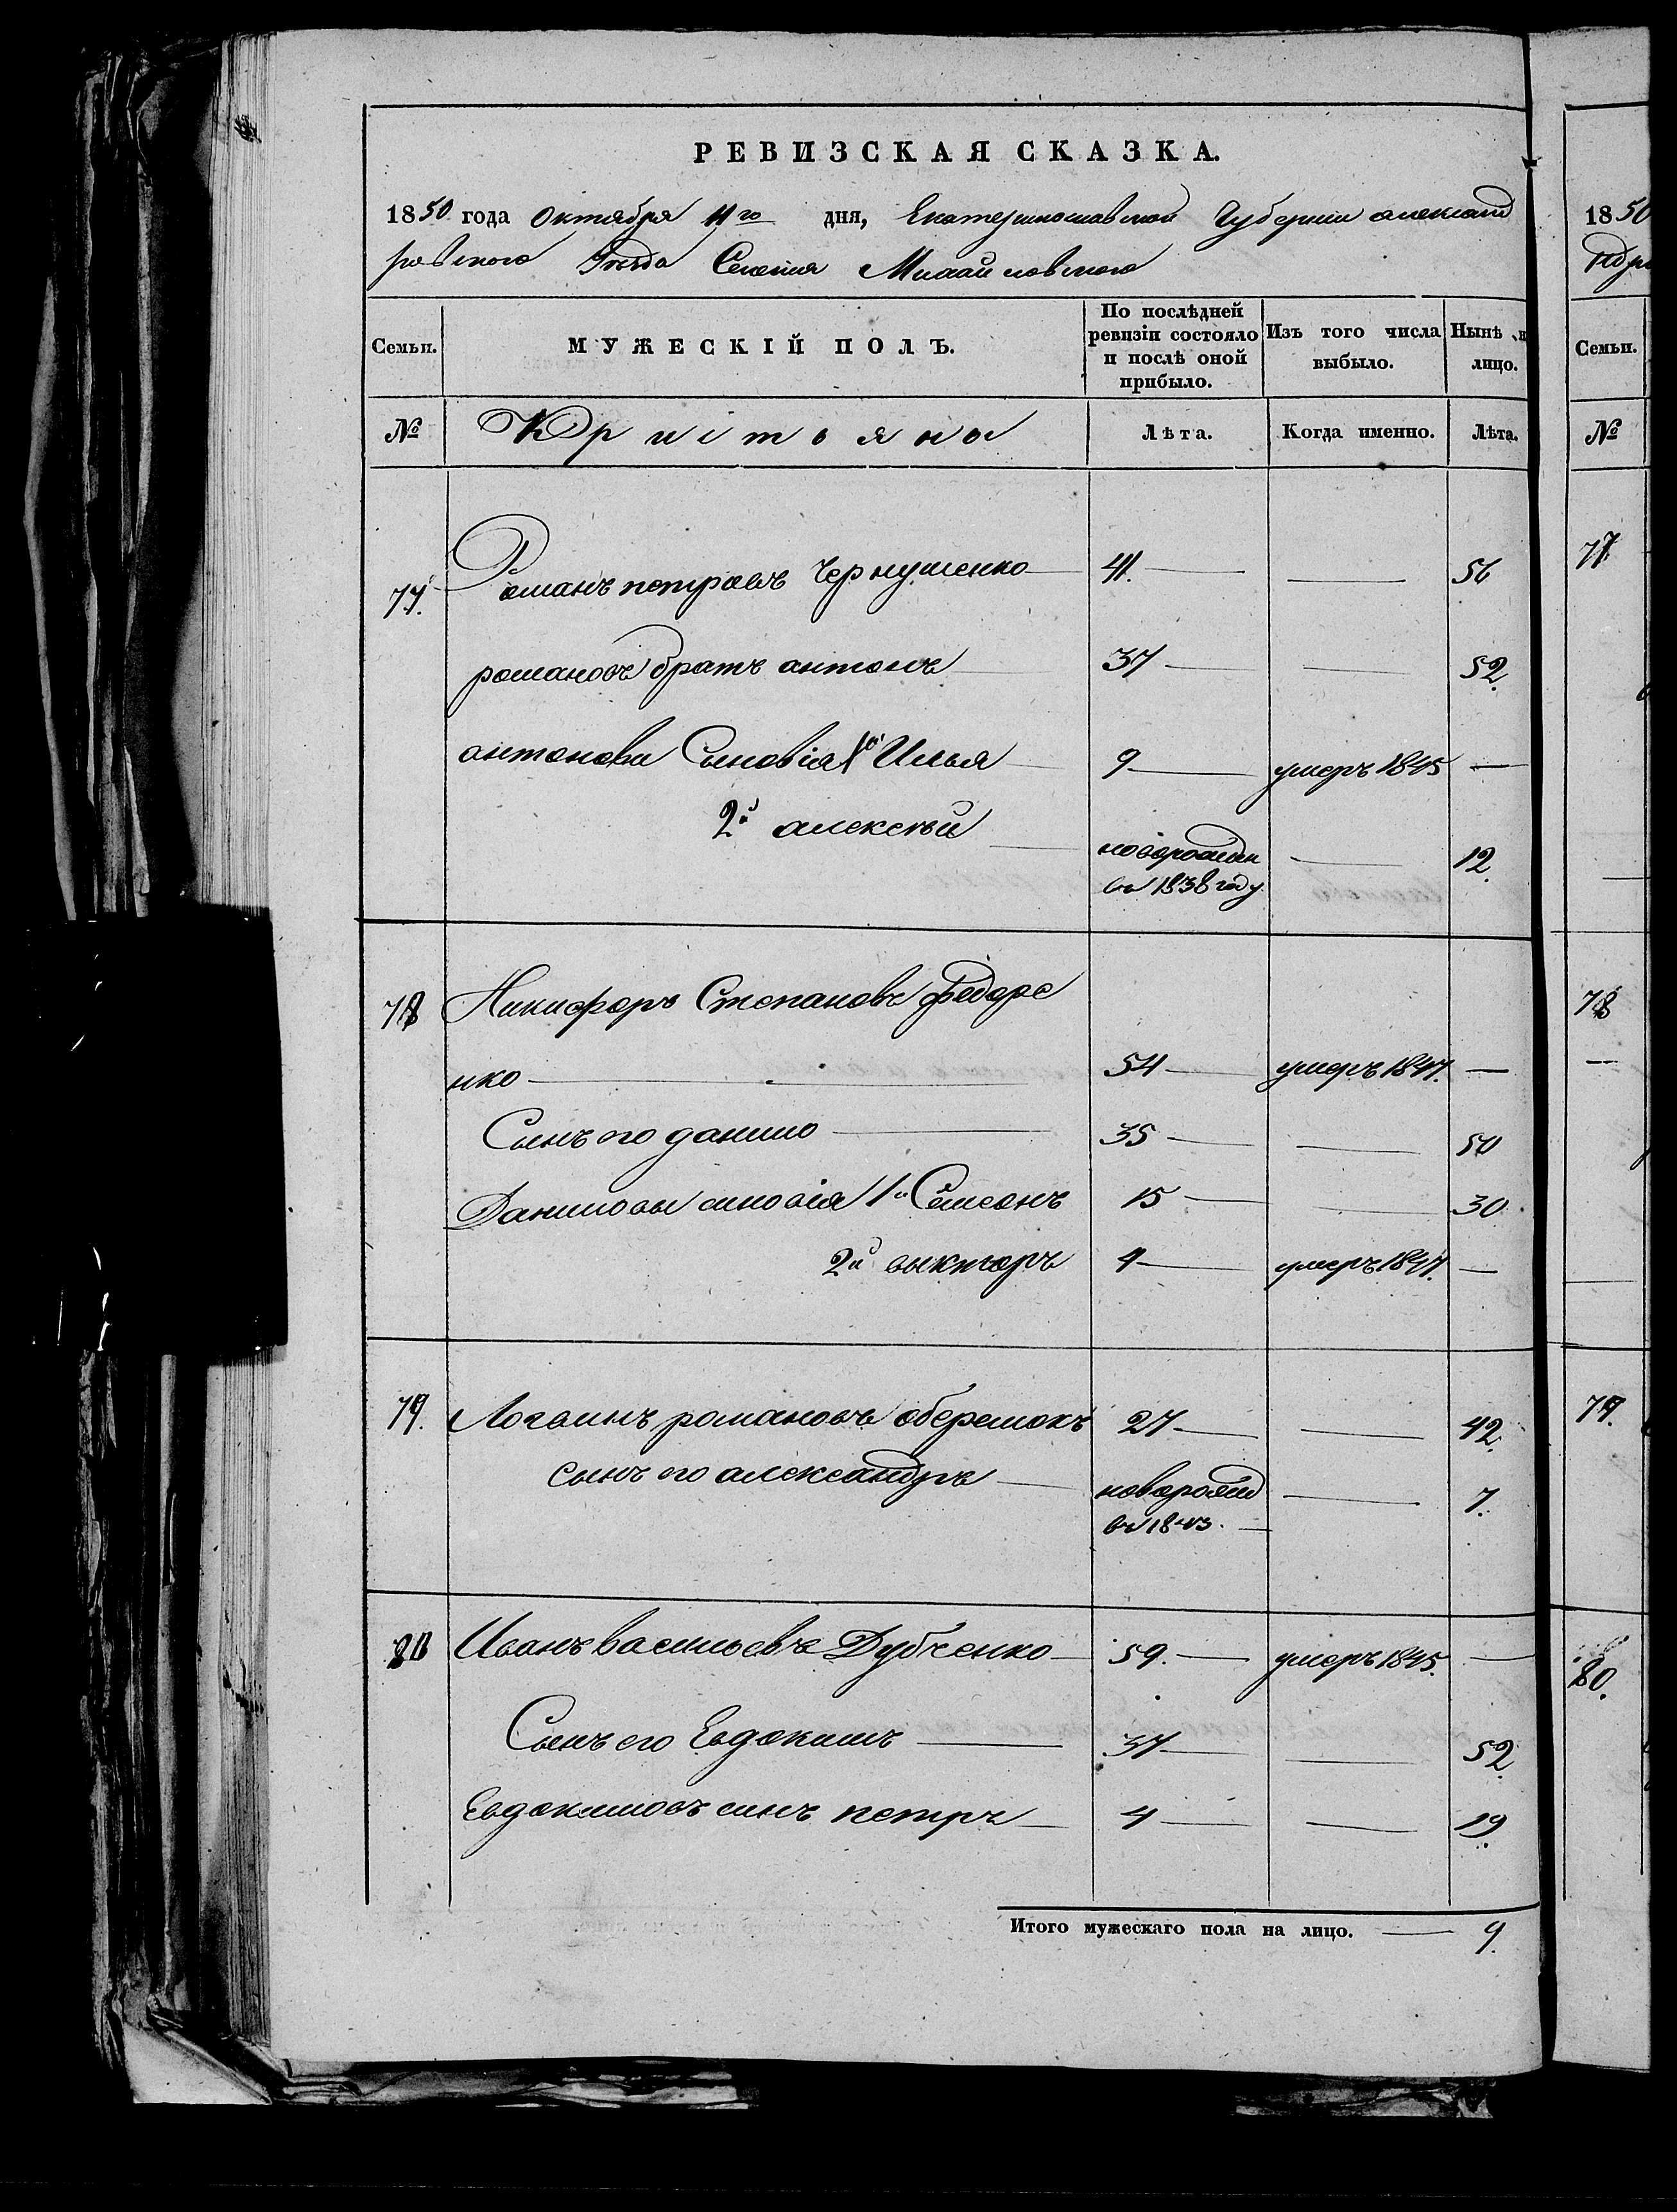 РЕВИЗСКАЯ СКАЗКА.
1850 года Октября 11го дня, Екатеринославской Губерніи александ
ровского Уезда Селенія Михайловского
Семьи. МУЖЕСКІЙ ПОЛЪ. По послѣдней ревизіи состояло и послѣ оной прибыло. Изъ того числа выбыло. Нынѣ н лицо.
№ Лѣта. Когда именно. Лѣта.
77. Романъ петровъ Чернушенко 41. 56
романовъ братъ антонъ 37 52.
антоновы Сыновія 1й Илья 9 умеръ 1845
2й алексѣй новорожден въ 1838 году. 12.
78 Никифоръ Степановъ федоре
нко 54 умеръ 1847.
Сынъ его данило 35 50
Даниловы синовія 1й Семеонъ 15 30
2й выкторъ 4 умеръ 1847.
79. Логвинъ романовъ оберемокъ 27 42.
сынъ его александръ новорожд въ 1843. 7.
80 Иванъ васильевъ Дубченко 59. умеръ 1845.
Сынъ его Евдокимъ 37 52.
Евдокимовъ синъ петръ 4 19.
Итого мужескаго пола на лицо. 9.
1850
Семьи.
№
77.
78
79.
80.